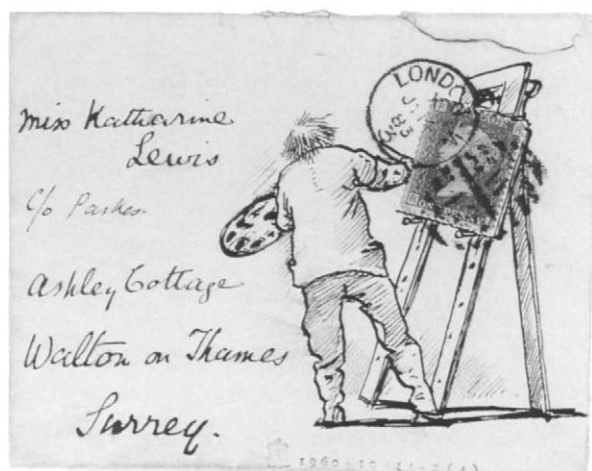 Miss Katharine
Lewis
c/o Parkes
Ashley Cottage
Walton on Thames
Surrey.
LONDO
1960-10-